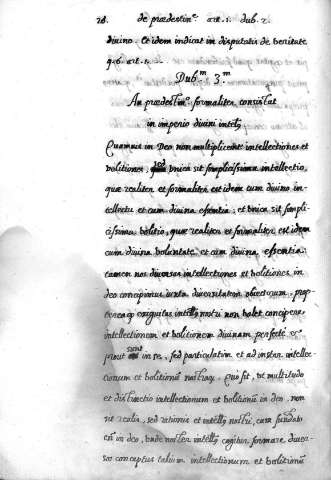 28. de prædestin.e art. 1. dub. 2.
divino. Et idem indicat in disputatis de veritate
q. 6. art. 1.
Dub.m 3.m
An prædestin.o formaliter consistat
in imperio divini intell.
Quamvis in Deo non multiplicentur intellectiones et
volitiones, sed unica sit simplicissima intellectio,
quæ realiter et formaliter est idem cum divino in-
tellectu et cum divina essentia; et unica sit simpli-
cissima volitio, quæ realiter et formaliter est idem
cum divina voluntate et cum divina essentia:
tamen nos diversas intellectiones et volitiones in
deo concipimus iuxta diversitatem obiectorum. prop-
intellectionem et volitionem divinam perfecte
prout sunt in re, sed particulatim et ad instar intellec-
tionum et volitionum Quo fit, ut multitudo
et distinctio intellectionum et volitionum in deo, non
sit realis, sed rationis et intell. nostri, cum fundam.
in deo, unde noster intell. cogitur formare diver-
sos conceptus talium intellectionum et volitionum